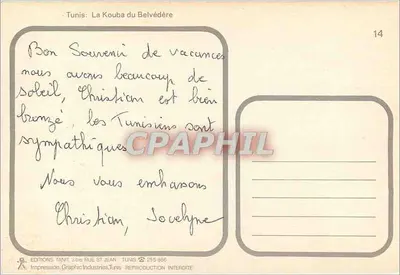 Tunis: La Kouba du Belvédère
14
Bon Souvenir de vacances
nous avons beaucoup de
soleil, Christian est bien
bronzé, les Tunisiens sont
sympathiques
CPAPHIL
Nous vous embrassons
Christian, Jocelyne
EDITIONS TANIT, RUE ST JEAN TUNIS ☎
Impression, Graphic Industries, Tunis REPRODUCTION INTERDITE